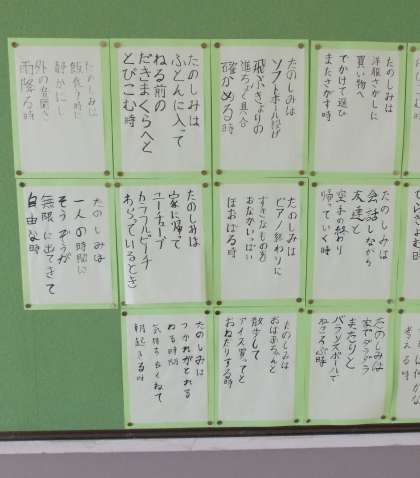 たのしみは
洋服さがしに
買い物へ
でかけて選び
またさがす時
たのしみは
ソフトボール投げ
飛ぶきょりの
進ちょく具合
確かめる時
たのしみは
ふとんに入って
ねる前の
だきまくらへと
とびこむ時
たのしみは
静かにし
外の音聞き
雨降る時
たのしみは
会話しながら
友達と
空手の終わり
帰っていく時
たのしみは
ピアノ終わりに
すきなものを
おなかいっぱい
ほおばる時
たのしみは
家に帰って
ユーチューブ
カラフルピーチ
わらっているとき
たのしみは
一人の時間に
そうぞうが
無限に出てきて
自由な時
たのしみは
家でダラダラ
まったりと
バランスボールで
ねころぶ時
たのしみは
おばあちゃんと
散歩して
アイス買ってと
おねだりする時
たのしみは
つかれがとれる
ねる時間
気持ちよくねて
朝起きる時